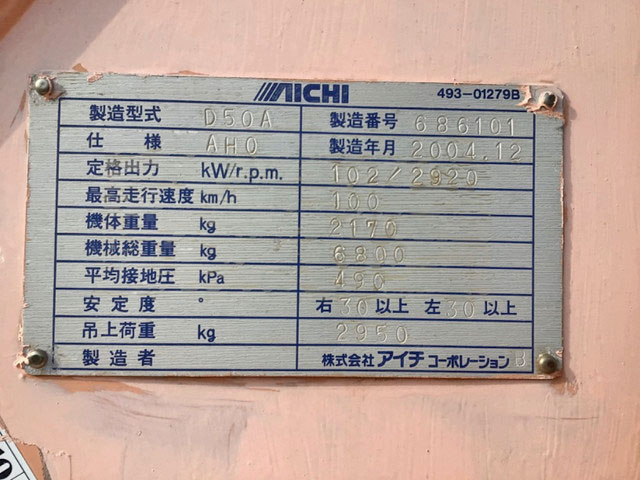 AICHI 493-01279B
製造型式 D50A 製造番号 686101
仕様 AHO 製造年月 2004.12
定格出力 kW/r.p.m. 102/2920
最高走行速度 km/h 100
機体重量 kg 2170
機械総重量 kg 6800
平均接地圧 kPa 490
安定度 ° 右30以上 左30以上
吊上荷重 kg 2950
製造者 株式会社アイチコーポレーション B